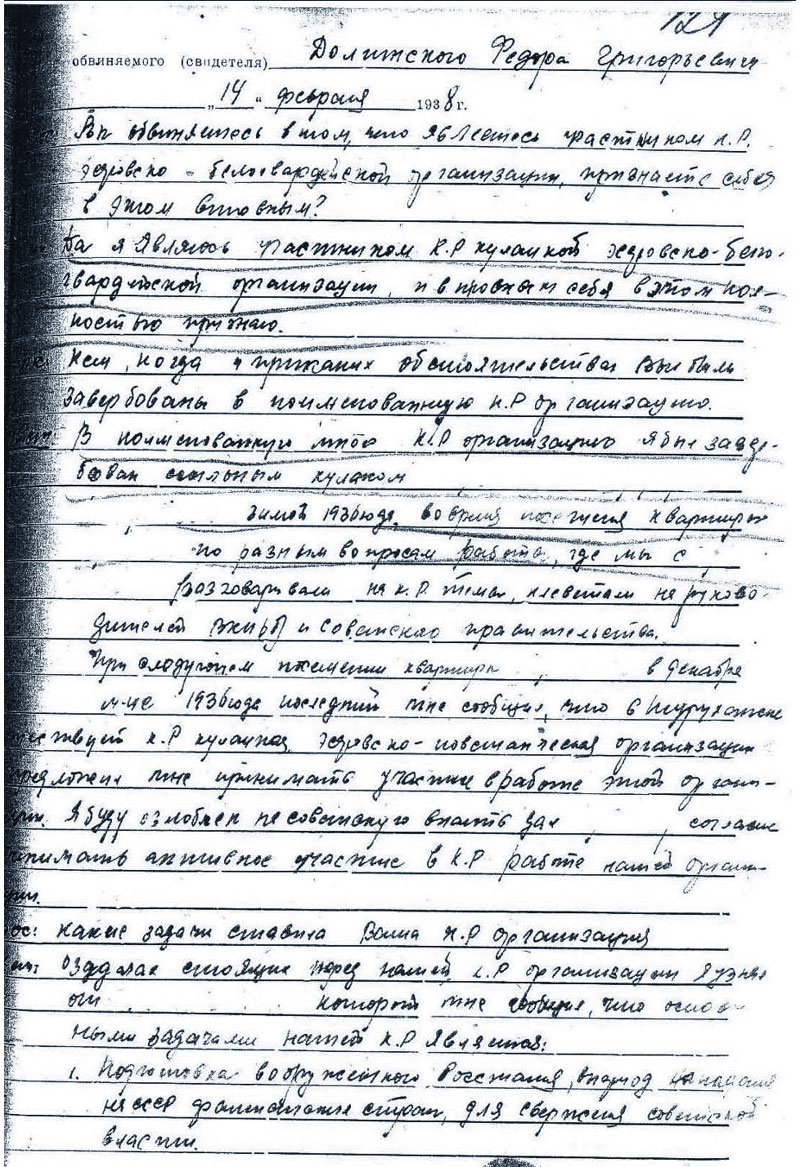 121
обвиняемого (свидетеля) Долижского Федора Григорьевич
„14“ февраля 1938 г.
Вы обвиняетесь в том, что являетесь участником к.р.
эсеровско-белогвардейской организации, признаете себя
в этом виновным?
Да я являюсь участником к.р кулацкой эсеровско-бело-
гвардейской организации, и виновным себя в этом пол-
ностью признаю.
Кем, когда и при каких обстоятельствах вы были
завербованы в поименованную к.р организацию.
В поименованную мною к.р организацию я был завер-
бован ссыльным кулаком
зимой 1936 года, во время посещения квартиры
по разным вопросам работы, где мы с
разговаривали на к.р. темы, клеветали на руково-
дителей ВКП(б) и советского правительства.
При следующем посещении квартиры, в декабре
м-це 1936 года последний мне сообщил, что в Туруханске
ществует к.р кулацкая, эсеровско-повстанческая организация
предложил мне принимать участие в работе этой органи-
ции. Я буду озлоблен на советскую власть дал, согласие
принимать активное участие в к.р работе нашей органи-
ции.
ос: Какие задачи ставила Ваша к.р организация
от: О задачах стоящих перед нашей к.р организации я узнал
от который мне сообщил, что основ-
ными задачами нашей к.р является:
1. Подготовка вооруженного восстания, в период нападения
на СССР фашистских стран, для свержения советской
власти.